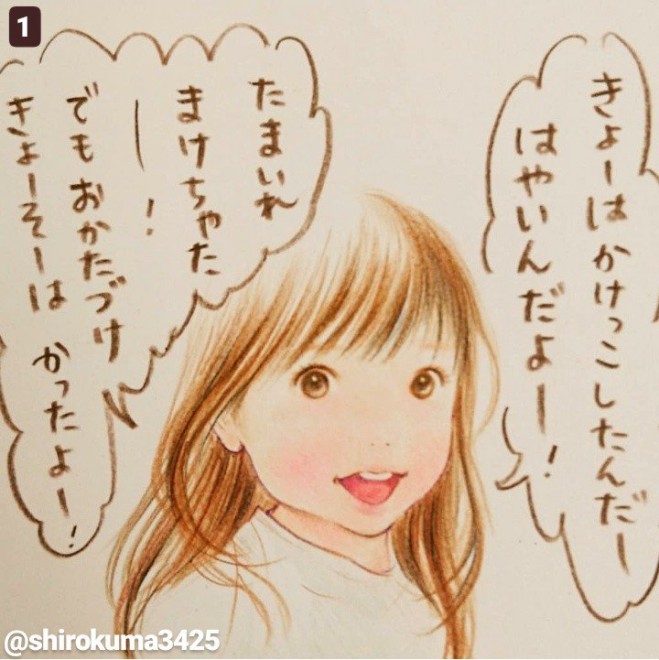 1
きょーはかけっこしたんだー
はやいんだよー!
たまいれ
まけちゃた
ー!
でもおかたづけ
きょーそーは かったよー!
@shirokuma3425